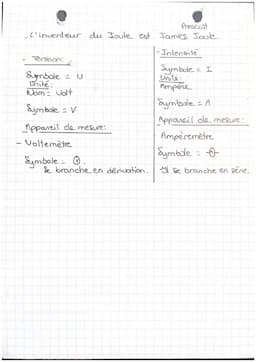 Prescott
L'inventeur du Joule est James Joule.
- Tension:
Symbole = U
Unité:
Nom: Volt
Symbole = V
Appareil de mesure:
- Voltemètre
Symbole =
Se branche en dérivation.
- Intensité
Symbole = I
Unité
Ampère
Symbole = A
Appareil de mesure:
Ampèremètre
Symbole =
Il se branche en série.